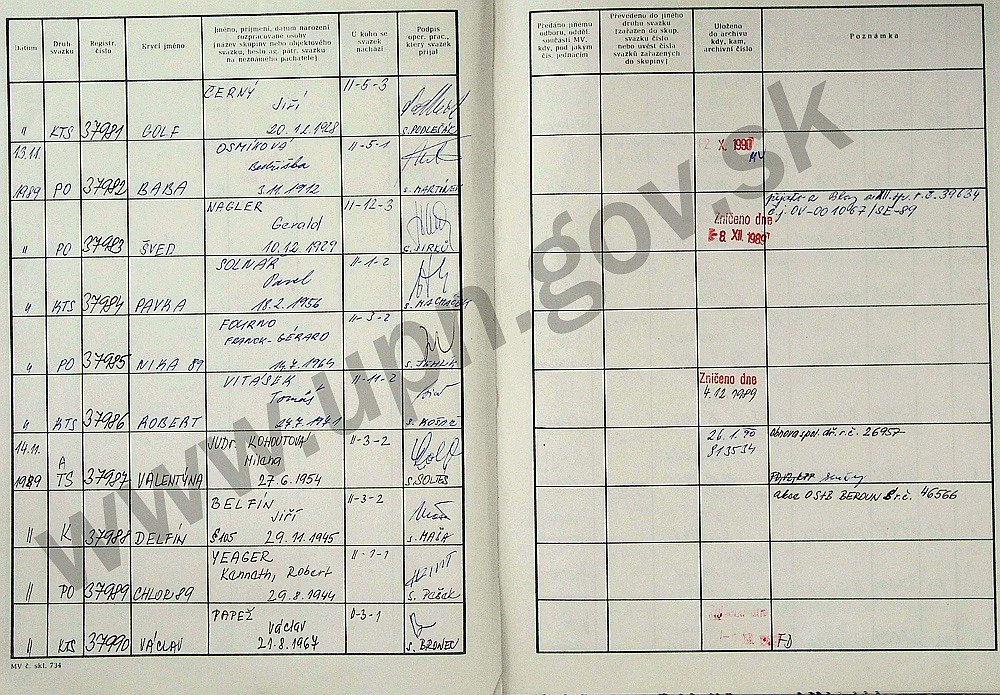 Datum
Druh svazku
Registr. číslo
Krycí jméno
Jméno, příjmení, datum narození
rozpracované osoby
(název skupiny nebo objektového
svazku, heslo ag. pátr. svazku
na neznámého pachatele)
U koho se
svazek
nachází
Podpis
oper. prac.,
který svazek
přijal
Předáno jinému
odboru, odděl.
součásti MV,
kdy, pod jakým
čís. jednacím
Převedeno do jiného
druhu svazku
(zařazen do skup.
svazku číslo
nebo uvést čísla
svazků zařazených
do skupiny)
Uloženo
do archivu
kdy, kam,
archivní číslo
Poznámka
ČERNÝ II-5-3
Jiří
" KTS 37981 GOLF 20.12.1928 s. PODLEŠÁK
13.11. OSMÍKOVÁ II-5-1
Bedřiška
1989 PO 37982 BABA 3.11.1912 s. MARTÍNEK
X. 1990
NAGLER II-12-3
Gerald
" PO 37983 ŠVÉD 10.12.1929 s. JIRKŮ
Zničeno dne
8. XII. 1989
r.č. 39634
č.j. OV-001067/SE-89
SOLNÁŘ II-1-2
Pavel
" KTS 37984 PAVKA 18.2.1956
II-3-2
FRANCK-GÉRARD
" PO 37985 NIKA 89 14.7.1964
VITÁSEK II-11-2
Tomáš
" KTS 37986 ROBERT 24.7.1971
Zničeno dne
4.12 1989
14.11. JUDr. KOHOUTOVÁ II-3-2
A Milena
1989 TS 37987 VALENTÝNA 27.6.1954 s. ŠOLTÉS
26.1.90
913534
obnova spol. dř. r.č. 26957
BELFÍN II-3-2
Jiří
" K 37988 DELFÍN 29.11.1945 s. MÁŠA
akce OStB BEROUN r.č. 46566
YEAGER II-1-1
Kenneth, Robert
" PO 37989 CHLOR 89 29.8.1944
PAPEŽ II-3-1
Václav
" KTS 37990 VÁCLAV 21.8.1967
MV č. skl. 734
www.upn.gov.sk